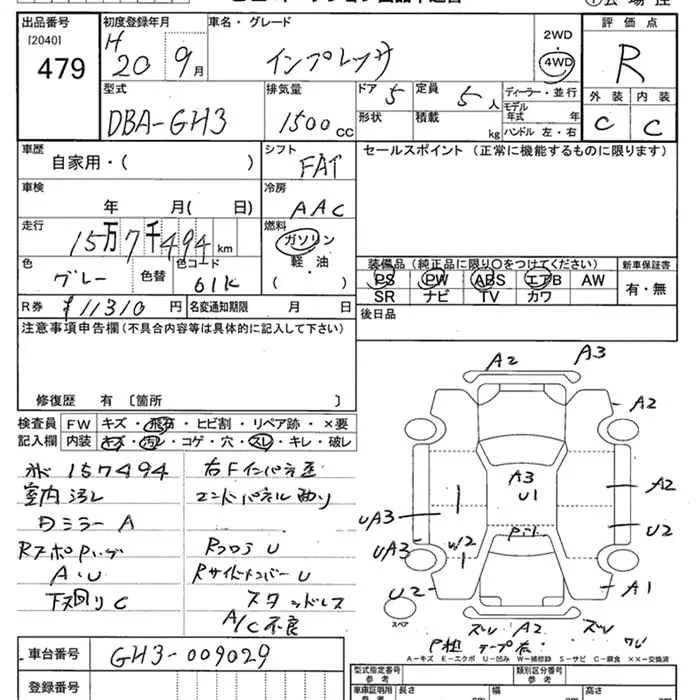 出品番号 初度登録年月 車名・グレード 2WD 評価点
[2040] H 4WD
479 20 9月 インプレッサ R
型式 排気量 ドア 5 定員 5人 ディーラー・並行 外装 内装
DBA-GH3 1500cc 形状 積載 kg モデル年式 年 C C
ハンドル 左・右
車歴 シフト セールスポイント (正常に機能するものに限ります)
自家用・( ) FAT
車検 冷房
年 月( 日) AAC
走行 燃料
15万7千494km ガソリン
色 色替 色コード 軽・油 装備品(純正品に限り○をつけてください) 新車保証書
グレー 61K ( ) PS PW ABS エアB AW 有・無
SR ナビ TV カワ
R券 ¥11310円 名変通知期限 月 日 後日品
注意事項申告欄(不具合内容等は具体的に記入して下さい)
修復歴 有 〔箇所 〕
検査員 FW キズ・飛石・ヒビ割・リペア跡・×要
記入欄 内装 キズ・汚レ・コゲ・穴・スレ・キレ・破レ
A2 A3
A2
157494 右Fインパネ歪
室内汚レ エンドパネル曲り
A3
U1
A2
ミラーA
UA3 U2
RスポPハゲ RフロアU
UA3 W2
A・U RサイドメンバーU
U2 A1
下回りC スタッドレス
A/C不良
スペア
ズレ A2 ズレ
A-キズ E-エクボ U-凹み W-補修跡 S-サビ C-腐食 ××-交換済
車台番号 GH3-009029
型式指定番号 類別区分番号
参考 参考
登録番号
車庫証明用 長さ 幅 高さ
参考 cm cm cm